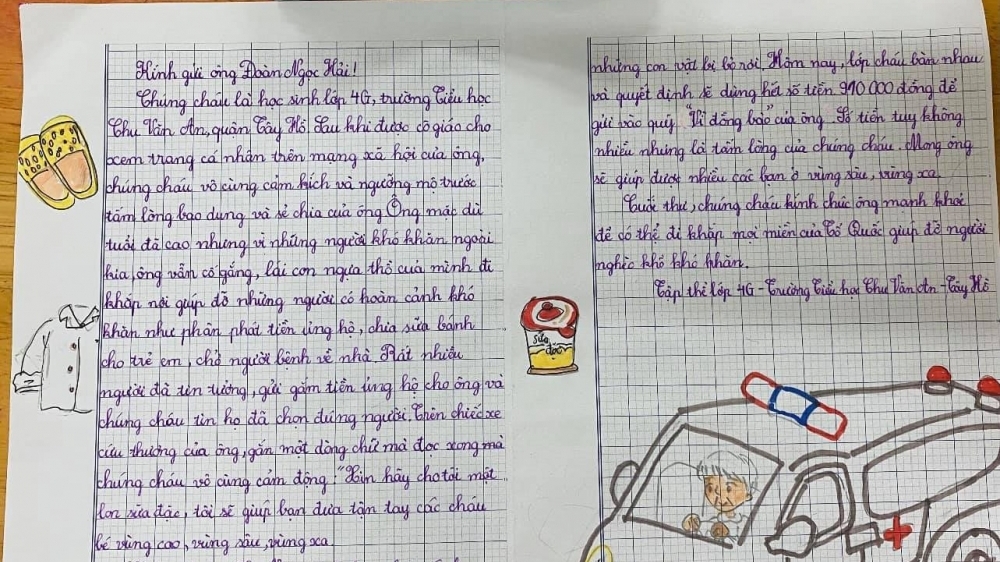 Kính gửi ông Đoàn Ngọc Hải!
Chúng cháu là học sinh lớp 4G, trường Tiểu học
Chu Văn An, quận Tây Hồ. Sau khi được cô giáo cho
xem trang cá nhân trên mạng xã hội của ông,
chúng cháu vô cùng cảm kích và ngưỡng mộ trước
tấm lòng bao dung và sẻ chia của ông. Ông mặc dù
tuổi đã cao nhưng vì những người khó khăn ngoài
kia, ông vẫn cố gắng, lái con ngựa thồ của mình đi
khắp nơi giúp đỡ những người có hoàn cảnh khó
khăn như phân phát tiền ủng hộ, chia sữa bánh
cho trẻ em, chở người bệnh về nhà. Rất nhiều
người đã tin tưởng, gửi gắm tiền ủng hộ cho ông và
chúng cháu tin họ đã chọn đúng người. Trên chiếc xe
cứu thương của ông, gắn một dòng chữ mà đọc xong mà
chúng cháu vô cùng cảm động: "Xin hãy cho tôi một
lon sữa đặc, tôi sẽ giúp bạn đưa tận tay các cháu
bé vùng cao, vùng sâu, vùng xa.
những con vật bị bỏ rơi. Hôm nay, lớp cháu bàn nhau
và quyết định sẽ dùng hết số tiền 910 000 đồng để
gửi vào quỹ "Vì đồng bào" của ông. Số tiền tuy không
nhiều nhưng là tấm lòng của chúng cháu. Mong ông
sẽ giúp được nhiều các bạn ở vùng sâu, vùng xa.
Cuối thư, chúng cháu kính chúc ông mạnh khoẻ
để có thể đi khắp mọi miền của Tổ Quốc giúp đỡ người
nghèo khổ khó khăn.
Tập thể lớp 4G - Trường Tiểu học Chu Văn An - Tây Hồ
sữa
đặc